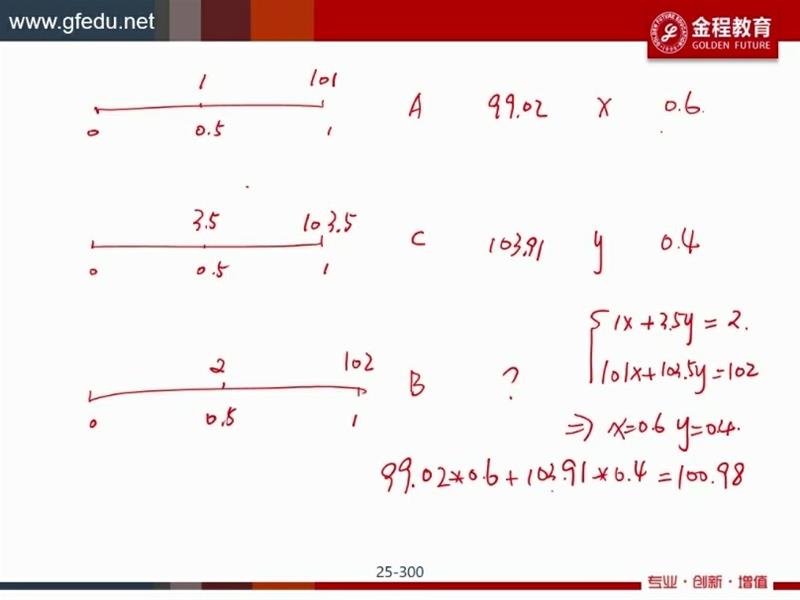 www.gfedu.net
金程教育
GOLDEN FUTURE
1 101
0 0.5 1
A 99.02 x 0.6
3.5 103.5
0 0.5 1
C 103.91 y 0.4
2 102
0 0.5 1
B ?
1x+3.5y=2.
101x+103.5y=102
⇒ x=0.6 y=0.4.
99.02*0.6+103.91*0.4=100.98
25-300
专业·创新·增值